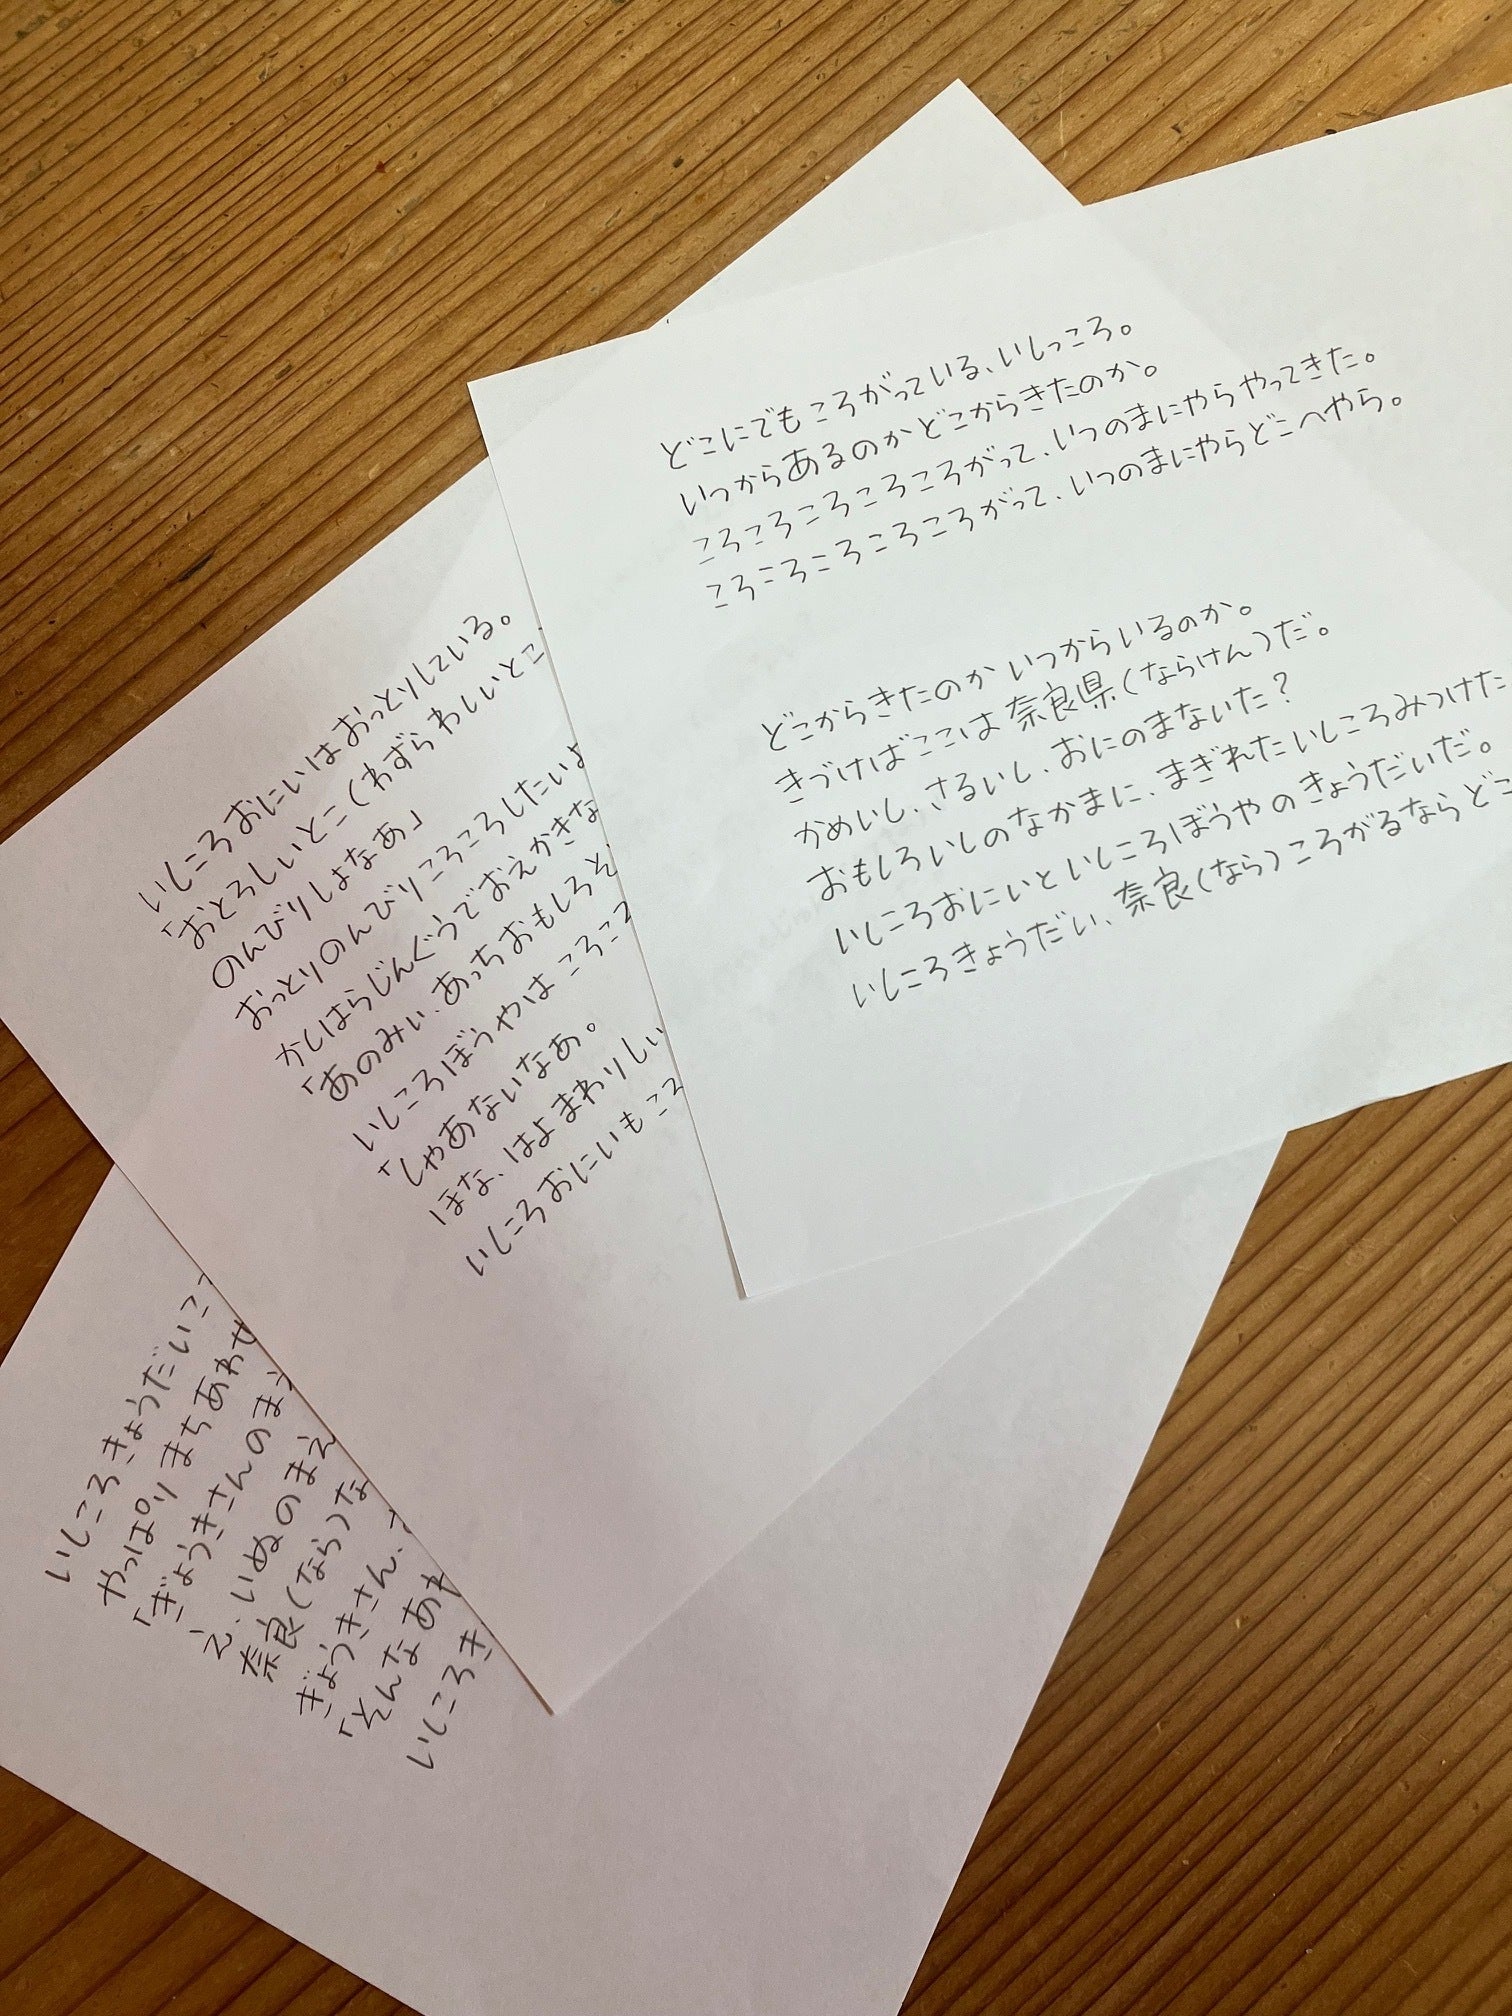 どこにでもころがっている、いしっころ。
いつからあるのかどこからきたのか。
ころころころころころがって、いつのまにやらやってきた。
ころころころころころがって、いつのまにやらどこへやら。
どこからきたのかいつからいるのか。
きづけばここは奈良県(ならけん)だ。
かめいし、さるいし、おにのまないた?
おもしろいしのなかまに、まぎれたいしころみつけた
いしころおにいといしころぼうやのきょうだいだ。
いしころきょうだい、奈良(なら)ころがるならどこ
いしころおにいはおっとりしている。
「おとろしいとこ(わずらわしいとこ
のんびりしよなあ」
おっとりのんびりころころしたいよ
かしはらじんぐうでおえかきな
「あのみぃ、あっちおもしろそ
いしころぼうやはころころ
「しゃあないなあ。
ほな、はよまわりしい
いしころおにいもころ
いしころきょうだいこ
やっぱりまちあわせ
「ぎょうきさんのま
え、いぬのまえ
奈良(なら)な
ぎょうきさん、
「そんなあわ
いしころき